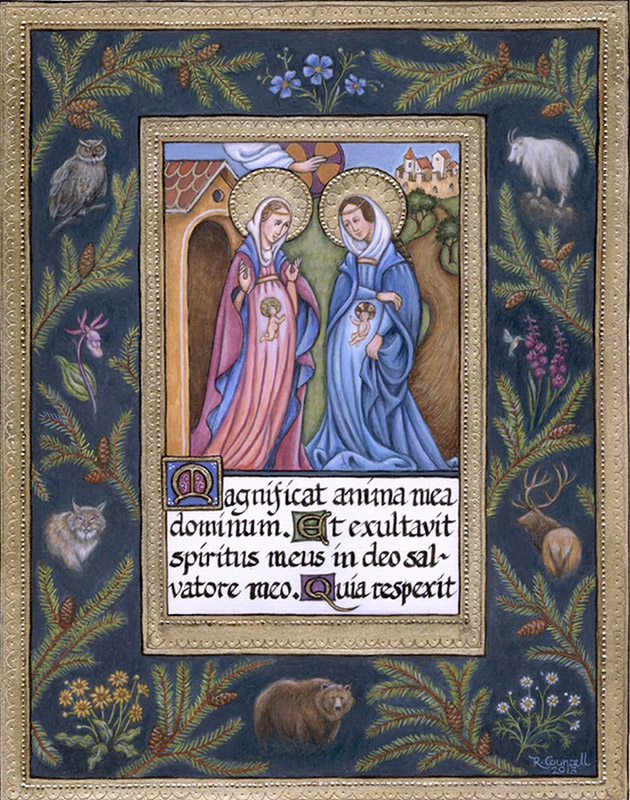 Magnificat anima mea
dominum. Et exultavit
spiritus meus in deo sal~
vatore meo. Quia respexit
R. Councell
2013